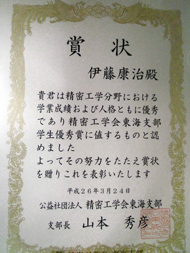 賞状
伊藤康治殿
貴君は精密工学分野における
学業成績および人格ともに優秀
であり精密工学会東海支部
学生優秀賞に値するものと認
めました
よってその努力をたたえ賞状
を贈りこれを表彰いたします
平成26年3月24日
公益社団法人 精密工学会東海支部
支部長 山本 秀彦